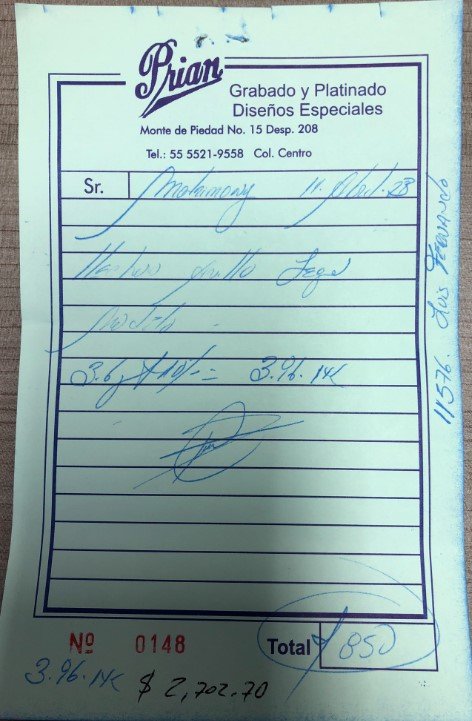 Prian
Grabado y Platinado
Diseños Especiales
Monte de Piedad No. 15 Desp. 208
Tel.: 55 5521-9558 Col. Centro
Sr. Matrimony 11. 23
3.6g + 10% = 3.96. 14K
11576. Luis Fernando
Nº 0148
Total 850
3.96. 14K
$ 2,702.70